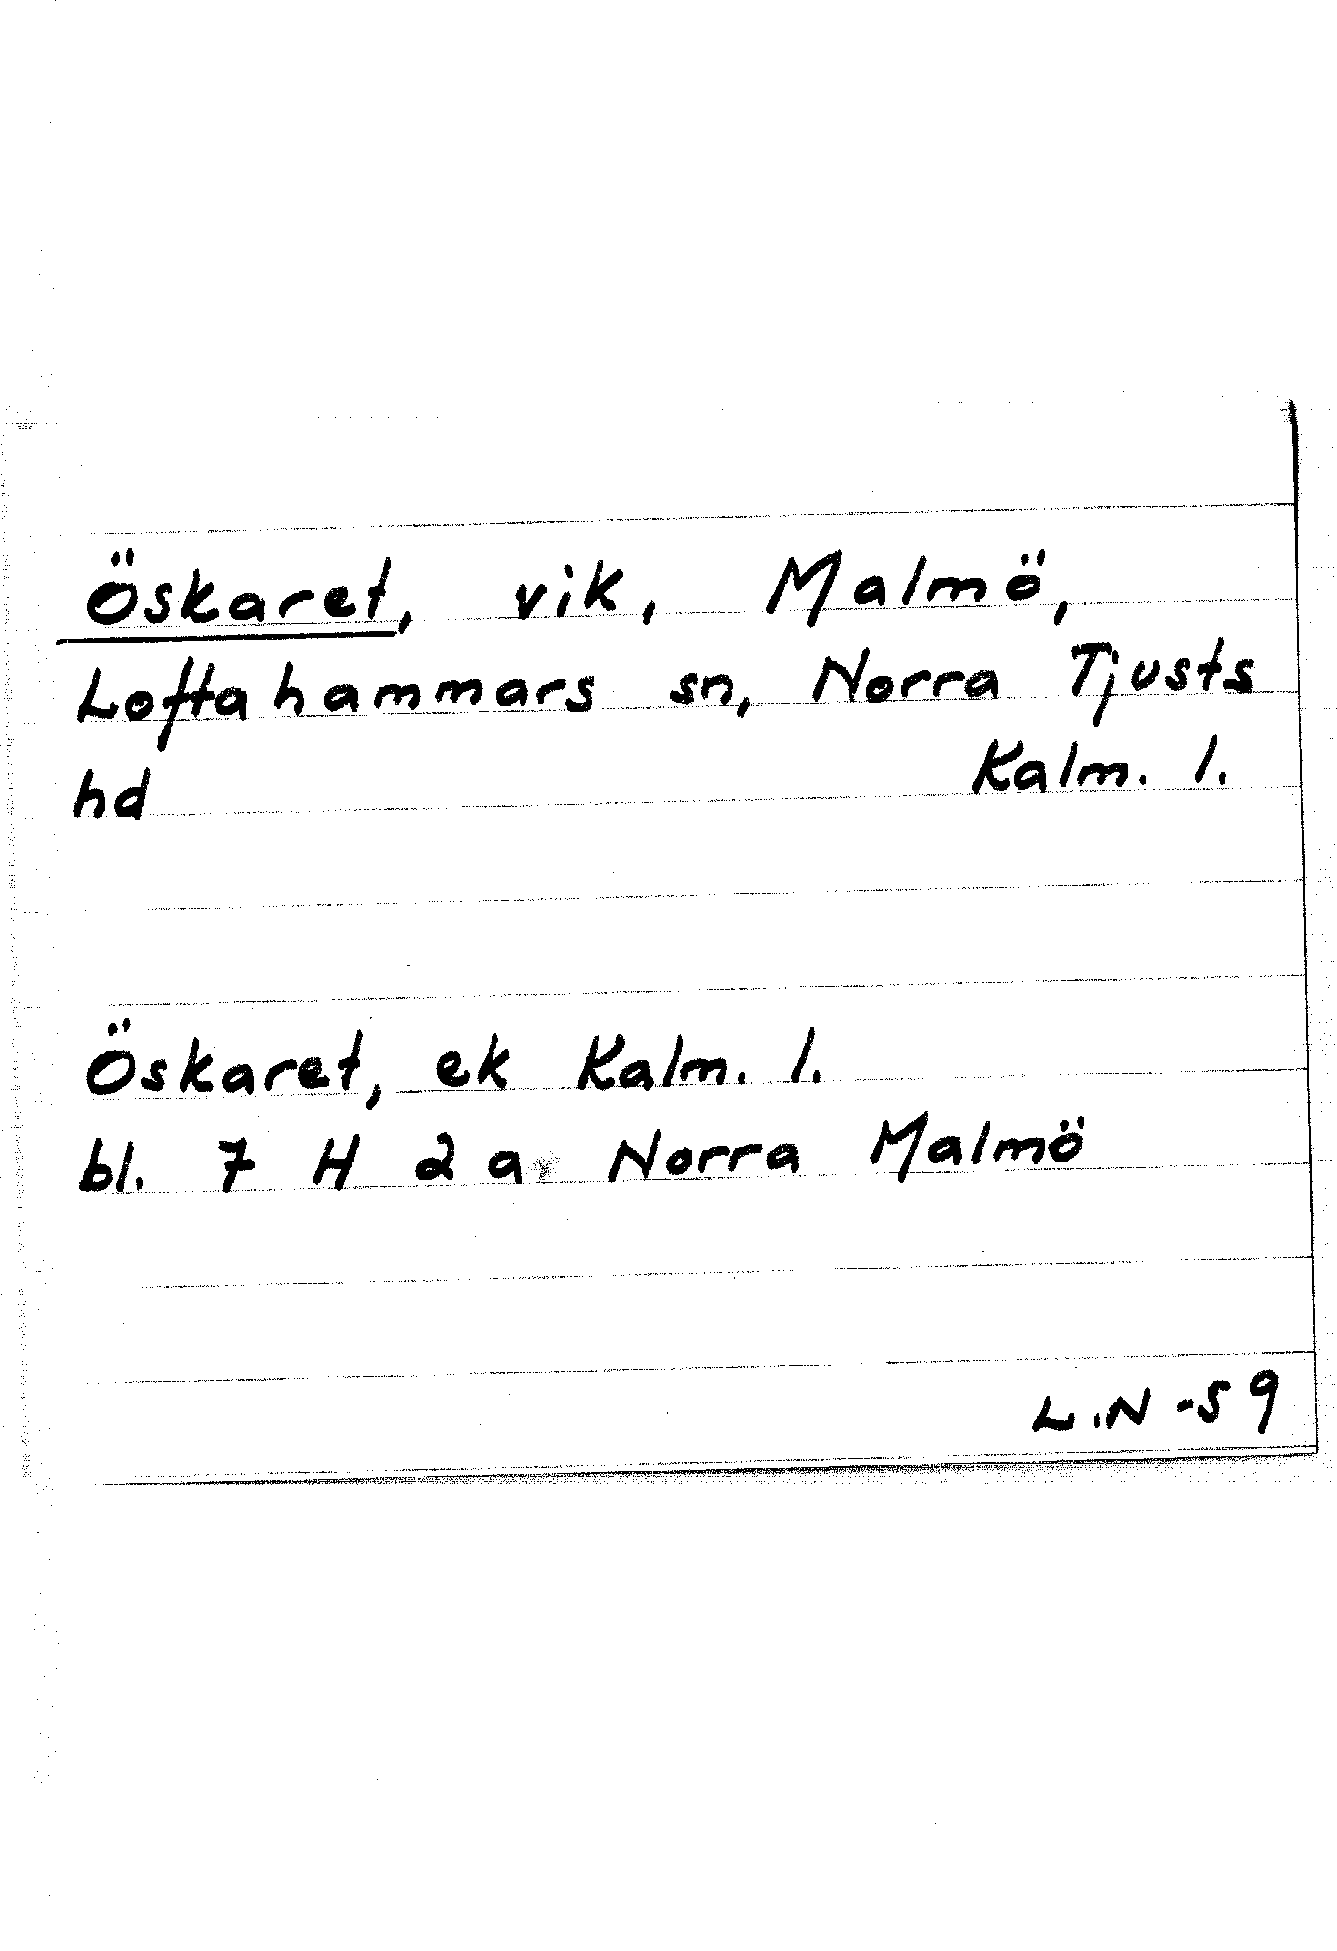 Öskaret, vik, Malmö,
Loftahammars sn, Norra Tjusts
hd Kalm. l.
Öskaret, ek Kalm. l.
bl. 7 H 2 a Norra Malmö
L.N -59